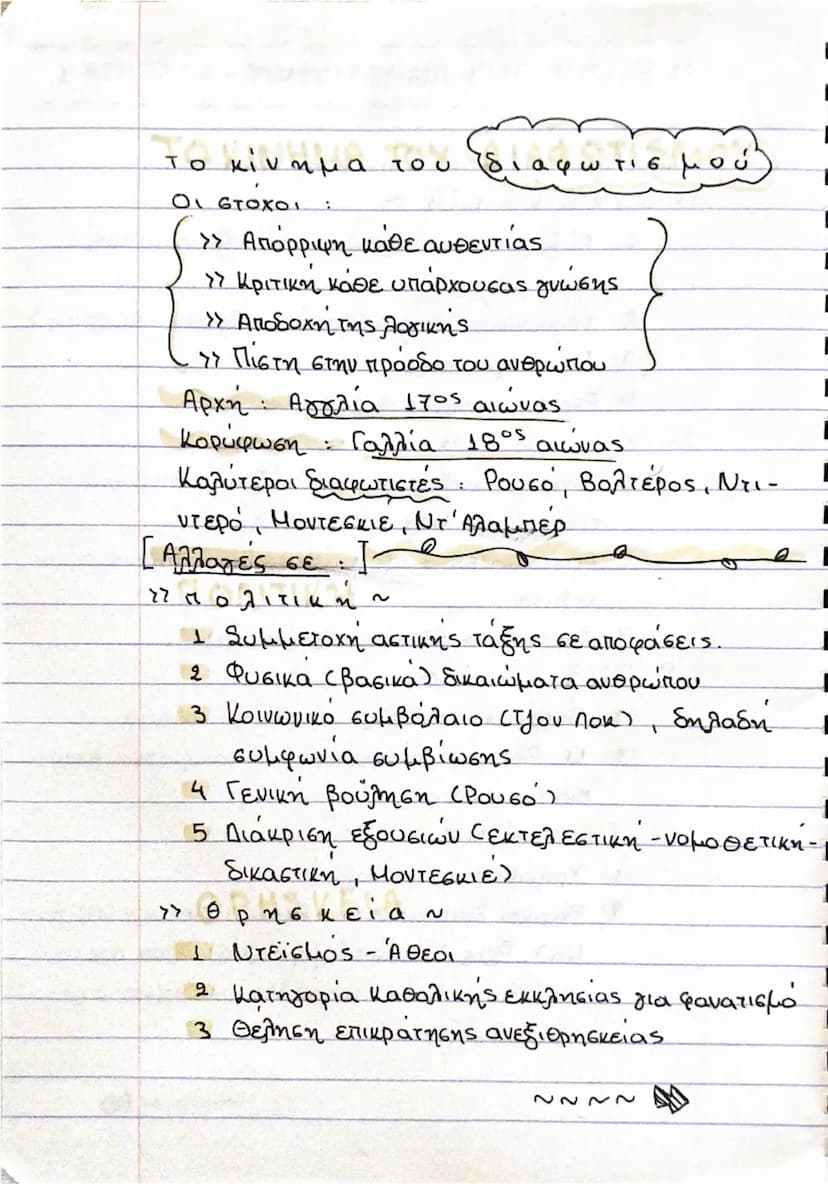 Το κίνημα του διαφωτισμού
Οι στόχοι :
>> Απόρριψη κάθε αυθεντίας
>> Κριτική κάθε υπάρχουσας γνώσης
>> Αποδοχή της λογικής
>> Πίστη στην πρόοδο του ανθρώπου
Αρχή : Αγγλία 17ος αιώνας
Κορύφωση : Γαλλία 18ος αιώνας
Καλύτεροι διαφωτιστές : Ρουσό, Βολτέρος, Ντι-
ντερό, Μοντεσκιέ, Ντ'Αλαμπέρ
[Αλλαγές σε :]
>> Πολιτική ~
1 Συμμετοχή αστικής τάξης σε αποφάσεις.
2 Φυσικά (βασικά) δικαιώματα ανθρώπου
3 Κοινωνικό συμβόλαιο (Τζον Λοκ), δηλαδή
συμφωνία συμβίωσης
4 Γενική βούληση (Ρουσό)
5 Διάκριση εξουσιών (εκτελεστική-νομοθετική-
δικαστική, Μοντεσκιέ)
>> Θρησκεία ~
1 Ντεϊσμός - Άθεοι
2 Κατηγορία καθολικής εκκλησίας για φανατισμό
3 Θέληση επικράτησης ανεξιθρησκείας